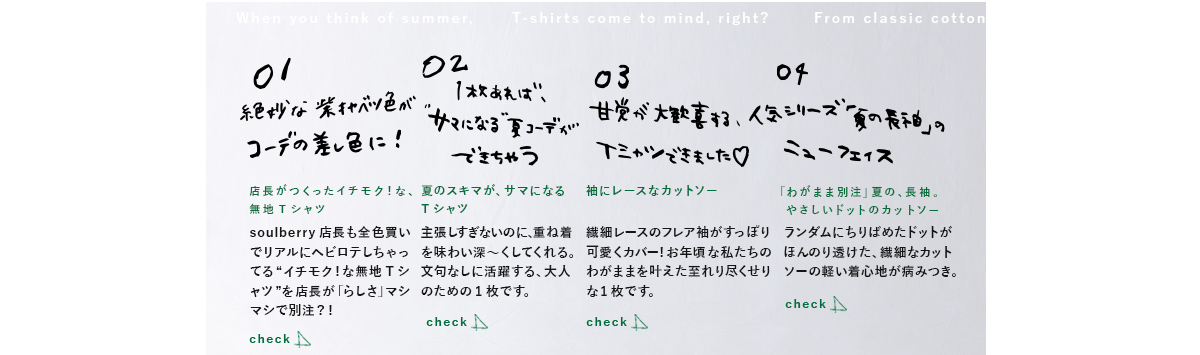 When you think of summer, T-shirts come to mind, right? From classic cotton
01
絶妙な 紫キャベツ色が
コーデの差し色に！
店長がつくったイチモク！な、
無地Tシャツ
soulberry店長も全色買い
でリアルにヘビロテしちゃっ
てる“イチモク！な無地Tシ
ャツ”を店長が「らしさ」マシ
マシで別注？！
check
02
1枚あれば、
“サマになる”夏コーデが
できちゃう
夏のスキマが、サマになる
Tシャツ
主張しすぎないのに、重ね着
を味わい深〜くしてくれる。
文句なしに活躍する、大人
のための1枚です。
check
03
甘党が大歓喜する、
Tシャツできました♡
袖にレースなカットソー
繊細レースのフレア袖がすっぽり
可愛くカバー！お年頃な私たちの
わがままを叶えた至れり尽くせり
な1枚です。
check
04
人気シリーズ「夏の長袖」の
ニューフェイス
「わがまま別注」夏の、長袖。
やさしいドットのカットソー
ランダムにちりばめたドットが
ほんのり透けた、繊細なカット
ソーの軽い着心地が病みつき。
check